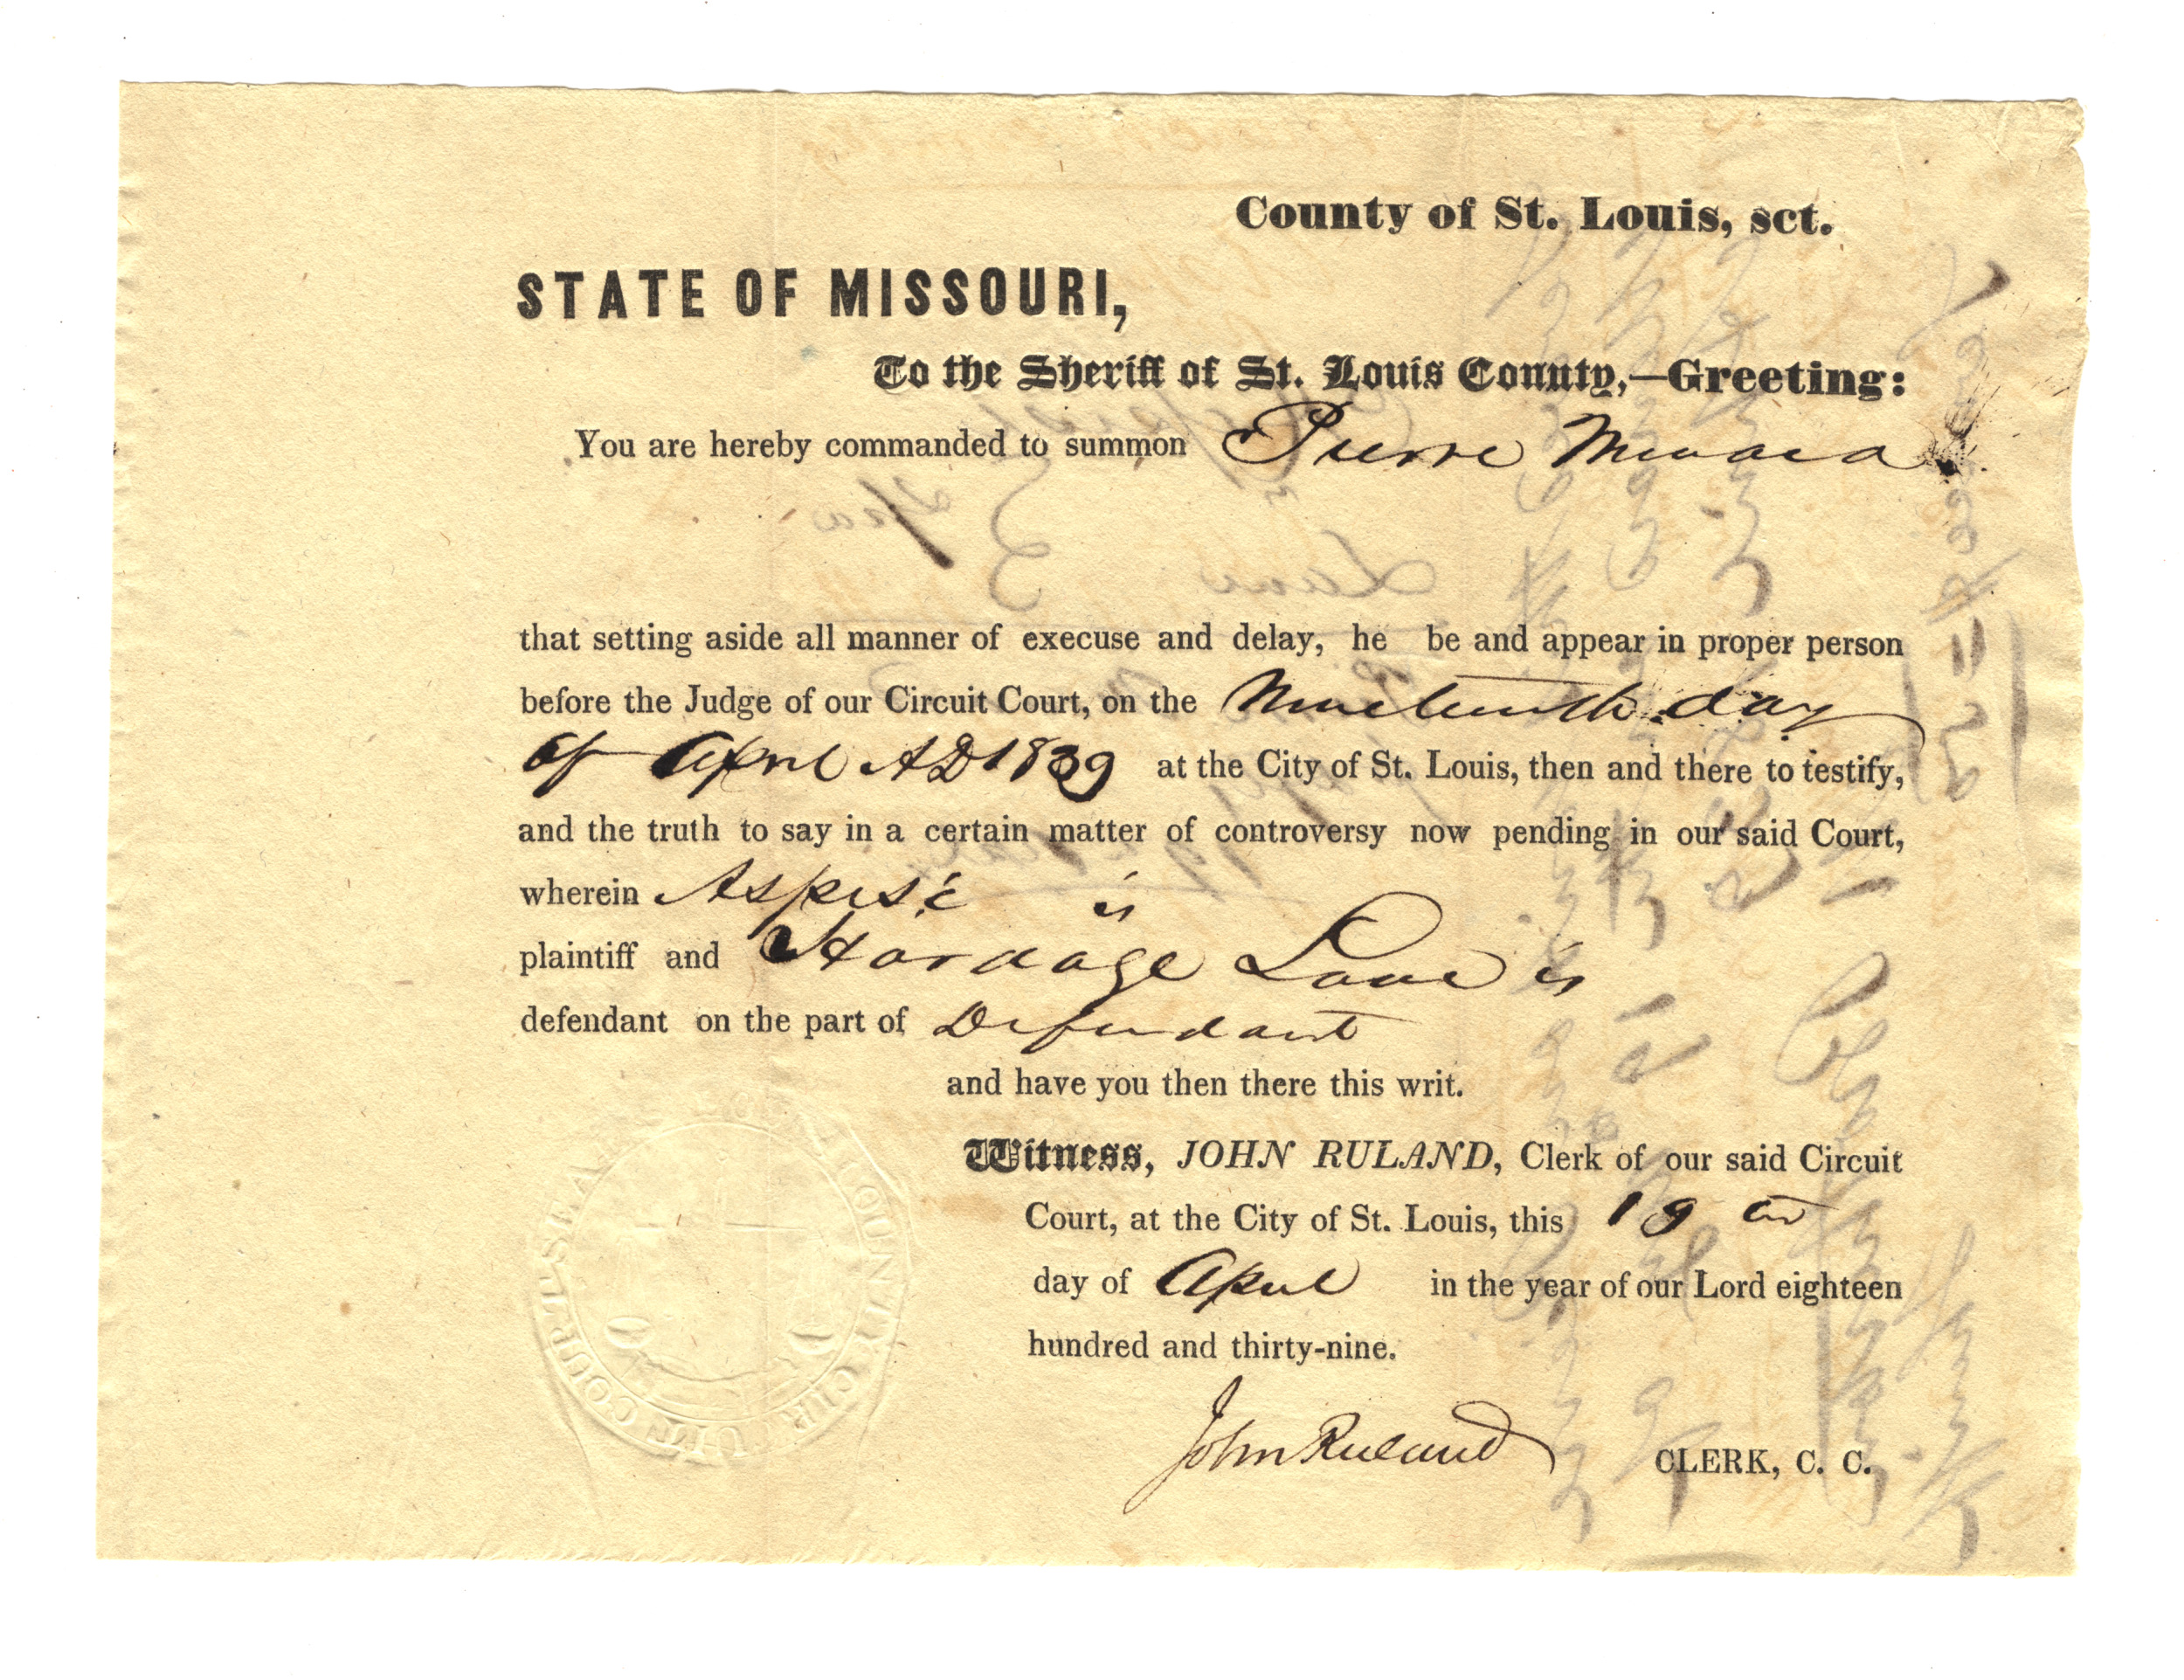 County of St. Louis, sct.
STATE OF MISSOURI,
To the Sheriff of St. Louis County,—Greeting:
You are hereby commanded to summon Pierre Menard
that setting aside all manner of execuse and delay, he be and appear in proper person
before the Judge of our Circuit Court, on the Nineteenth day
of April AD 1839 at the City of St. Louis, then and there to testify,
and the truth to say in a certain matter of controversy now pending in our said Court,
wherein Aspisé is
plaintiff and Hardage Lane is
defendant on the part of Defendant
and have you then there this writ.
Witness, JOHN RULAND, Clerk of our said Circuit
Court, at the City of St. Louis, this 19
day of April in the year of our Lord eighteen
hundred and thirty-nine.
John Ruland CLERK, C. C.